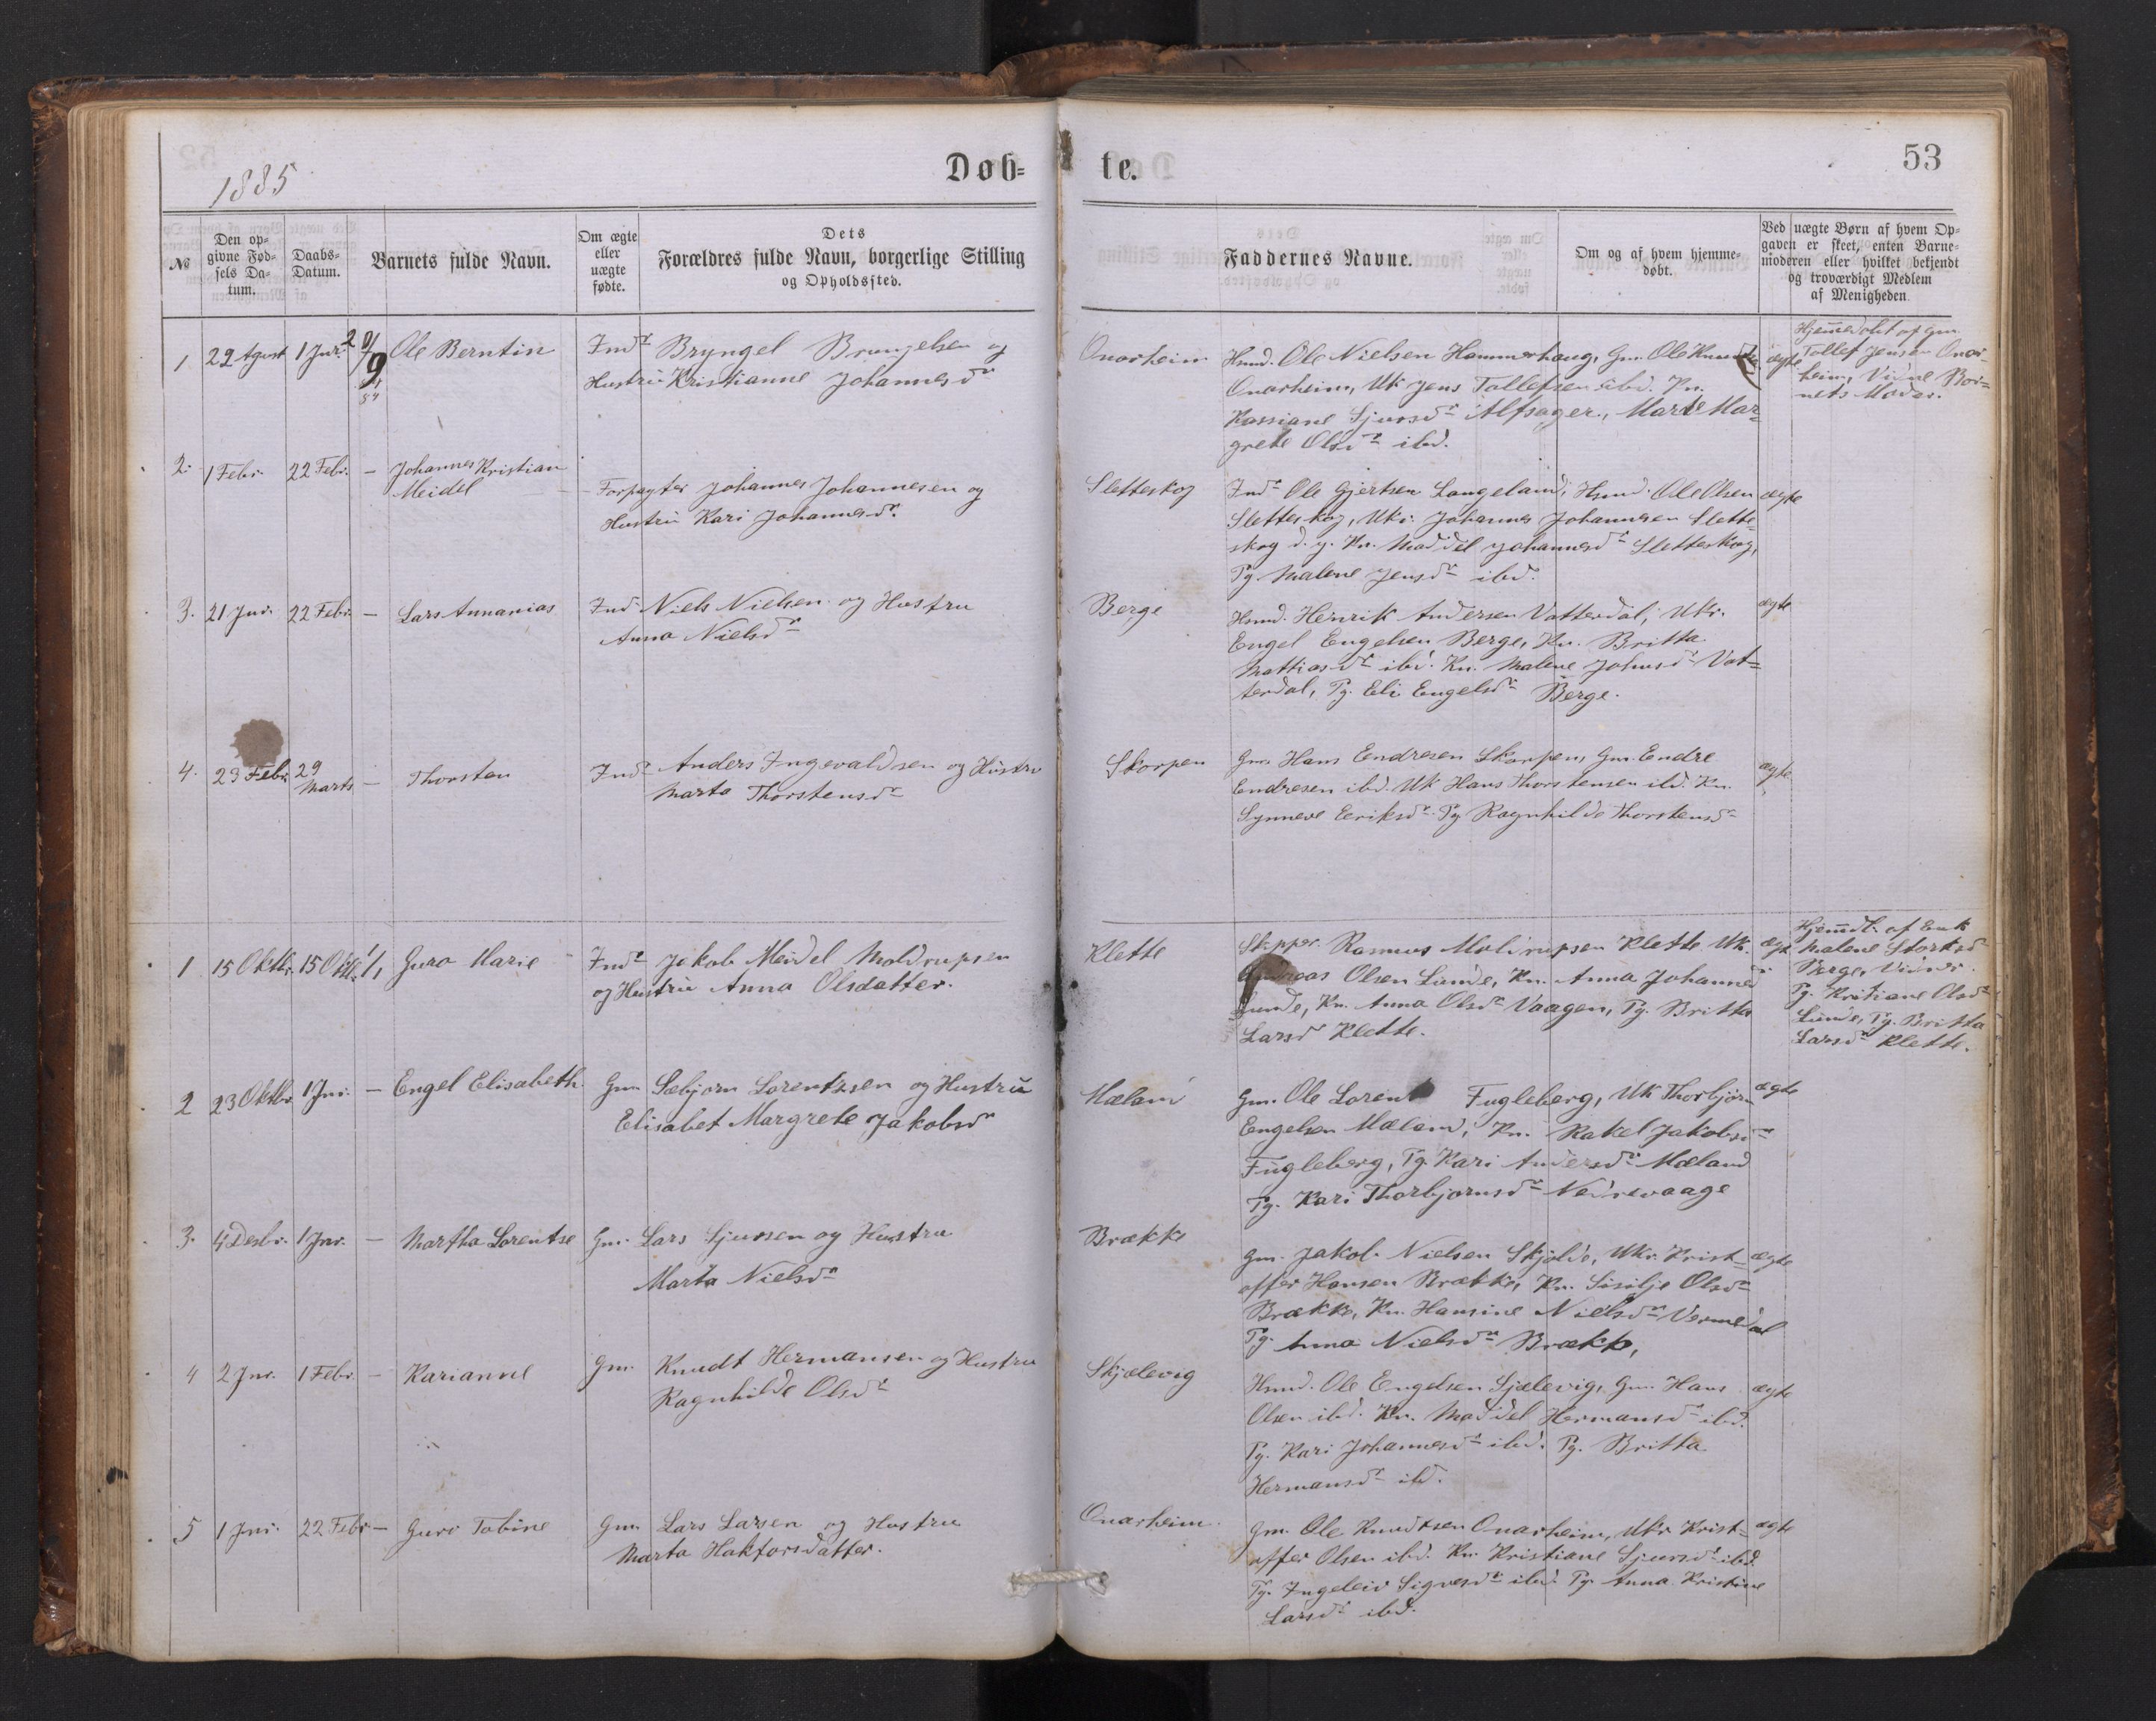 1885
Døb=
te.
53
No
Den op=
givne Fød=
sels Da=
tum.
Daabs=
Datum.
Barnets fulde Navn.
Om ægte
eller
uægte
fødte.
Dets
Forældres fulde Navn, borgerlige Stilling
og Opholdssted.
Faddernes Navne.
Om og af hvem hjemme=
døbt.
Ved uægte Børn af hvem Op=
gaven er skeet, enten Barne=
moderen eller hvilket bekjendt
og troværdigt Medlem
af Menigheden.
1 29 Agust 1 Jnr. Ole Berntin
Indr Bryngel Brungelsen og
Hustru Kristianne Johannesdr
Onarheim
Hsmd. Ole Nielsen Hammerhaug, Gm. Ole Knudts.
Onarheim, Uk Jens Tollefsen ibd. Kn.
Kassiane Sjursdr Alfsager., Marte Mar=
grete Olsdr ibd.
ægte
Hjemedøbt af Gm.
Tollef Jensen Onar
heim, Vidne Bar=
nets Moder.
2. 1 Febr. 22 Febr. – Johannes Kristian
Meidel
Forpagter Johannes Johannesen og
Hustru Kari Johannesdr.
Sletteskog
Indr Ole Gjertsen Langeland, Hsmd. Ole Olsen
Sletteskog, Ukr. Johannes Johannesen Slette=
skog d. y. Kn. Maddel Johannesdr Sletteskog,
Pg. Malene Jensdr ibd.
ægte
3. 21 Jnr. 22 Febr. – Lars Annanias
Ind. Niels Nielsen og Hustru
Anna Nielsdr
Berge
Hsmd. Henrik Andersen Vatterdal, Ukr.
Engel Engelsen Berge, Kn. Britta
Mattiasdr ibd. Kn. Malene Johnsdr Vat=
terdal, Pg. Eli Engelsdr Berge.
ægte
4. 23 Febr. 29
Marts – Thorsten
Indr Anders Ingevaldsen og Hustru
Marta Thorstensdr
Skorpen
Gm. Hans Endresen Skorpen, Gm. Endre
Endresen ibd. Uk Hans Thorstensen ibd. Kn.
Synneve Eeriksdr Pg Ragnhilde Thorstensdr
ægte
1 15 Oktbr. 15 Oktbr. Guro Marie
Indr Jakob Meidel Moldrupsen
og Hustru Anna Olsdatter.
Klette
Skipper. Rasmus Moldrupsen Klette Uk.
Andreas Olsen Lunde, Kn. Anna Johannesdr
Lunde, Kn. Anna Olsdr Vaagen, Pg. Britta
Larsdr Klette.
ægt
Hjemmdt. af Enk
Malene
Berge, Vidner.
Pg. Kristiane Olsdr
Lunde, Pg. Britta
Larsdr Klette.
2 23 Oktbr. 1 Jnr. – Engel Elisabeth
Gm. Sæbjørn Lorentzsen og Hustru
Elisabet Margrete Jakobsdr
Mæland
Gm. Ole Lorent Fugleberg, Uk Thorbjørn
Engelsen Mæland, Kn. Rakel Jakobsdr
Fugleberg, Pg. Kari Andersdr Mæland
Pg. Kari Thorbjørnsdr Nedrevaage
ægte
3. 4 Desbr. 1 Jnr. – Martha Lorentse
Gm. Lars Sjursen og Hustru
Marta Nielsdr
Brække
Gm. Jakob Nielsen Skjolde, Ukr. Krist=
offer Hansen Brække, Kn. Sisilje Olsdr
Brække, Kn. Hansine Nielsdr Vermedal
Pg. Anna Nielsdr Brække,
ægte
4 2 Jnr. 1 Febr. – Karianne
Gm. Knudt Hermansen og Hustru
Ragnhilde Olsdr
Skjælevig
Hsmd. Ole Engelsen Sjælevig, Gm. Hans
Olsen ibd. Kn. Maddel Hermansdr ibd.
Pg. Kari Johannesdr ibd. Pg. Britta
Hermansdr ibd.
ægte
5 1 Jnr. 22 Febr – Guro Tobine
Gm. Lars Larsen og Hustru
Marta Haktorsdatter.
Onarheim.
Gm. Ole Knudtsen Onarheim, Ukr. Krist=
offer Olsen ibd. Kn. Kristiane Sjursdr ibd.
Pg. Ingeleiv Sigvesdr ibd. Pg. Anna Kristine
Larsdr ibd.
ægte